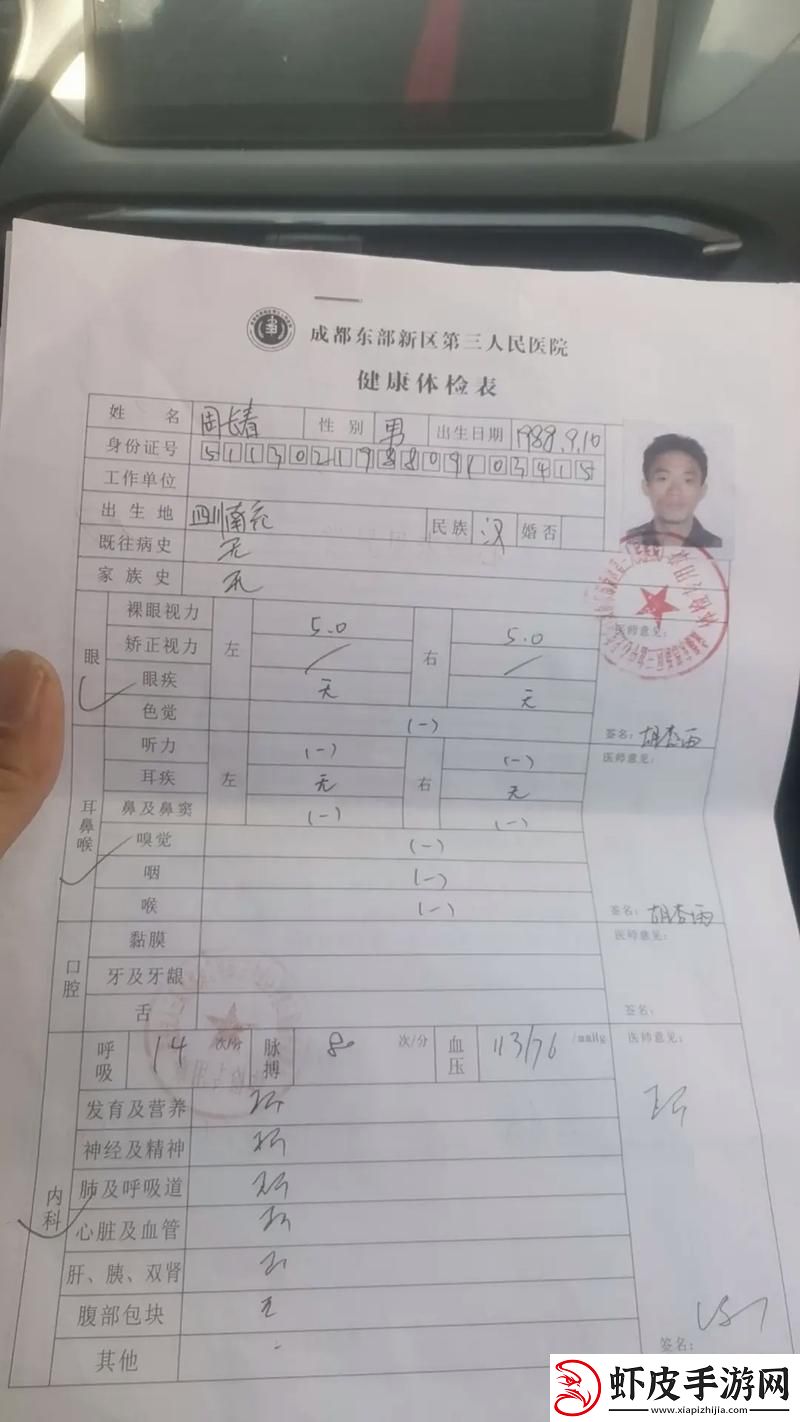 成都东部新区第三人民医院
健康体检表
姓 名 周长春 性 别 男 出生日期 1988.9.10
身份证号 511302198809103415
工作单位
出 生 地 四川南充 民族 汉 婚否
既往病史 无
家 族 史 无
眼
裸眼视力 左 5.0 右 5.0 医师意见:
矫正视力 / /
眼疾 无 无
色觉 (-) 签名: 胡杏雨
耳鼻喉
听力 左 (-) 右 (-) 医师意见:
耳疾 无 无
鼻及鼻窦 (-) (-)
嗅觉 (-)
咽 (-)
喉 (-) 签名: 胡杏雨
口腔
黏膜 医师意见:
牙及牙龈
舌 签名:
内科
呼吸 14 次/分 脉搏 80 次/分 血压 113/76 /mmHg 医师意见:
发育及营养
神经及精神
肺及呼吸道
心脏及血管
肝、胰、双肾
腹部包块 无
其他 - 签名:
虾皮手游网
www.xiapizhijia.com